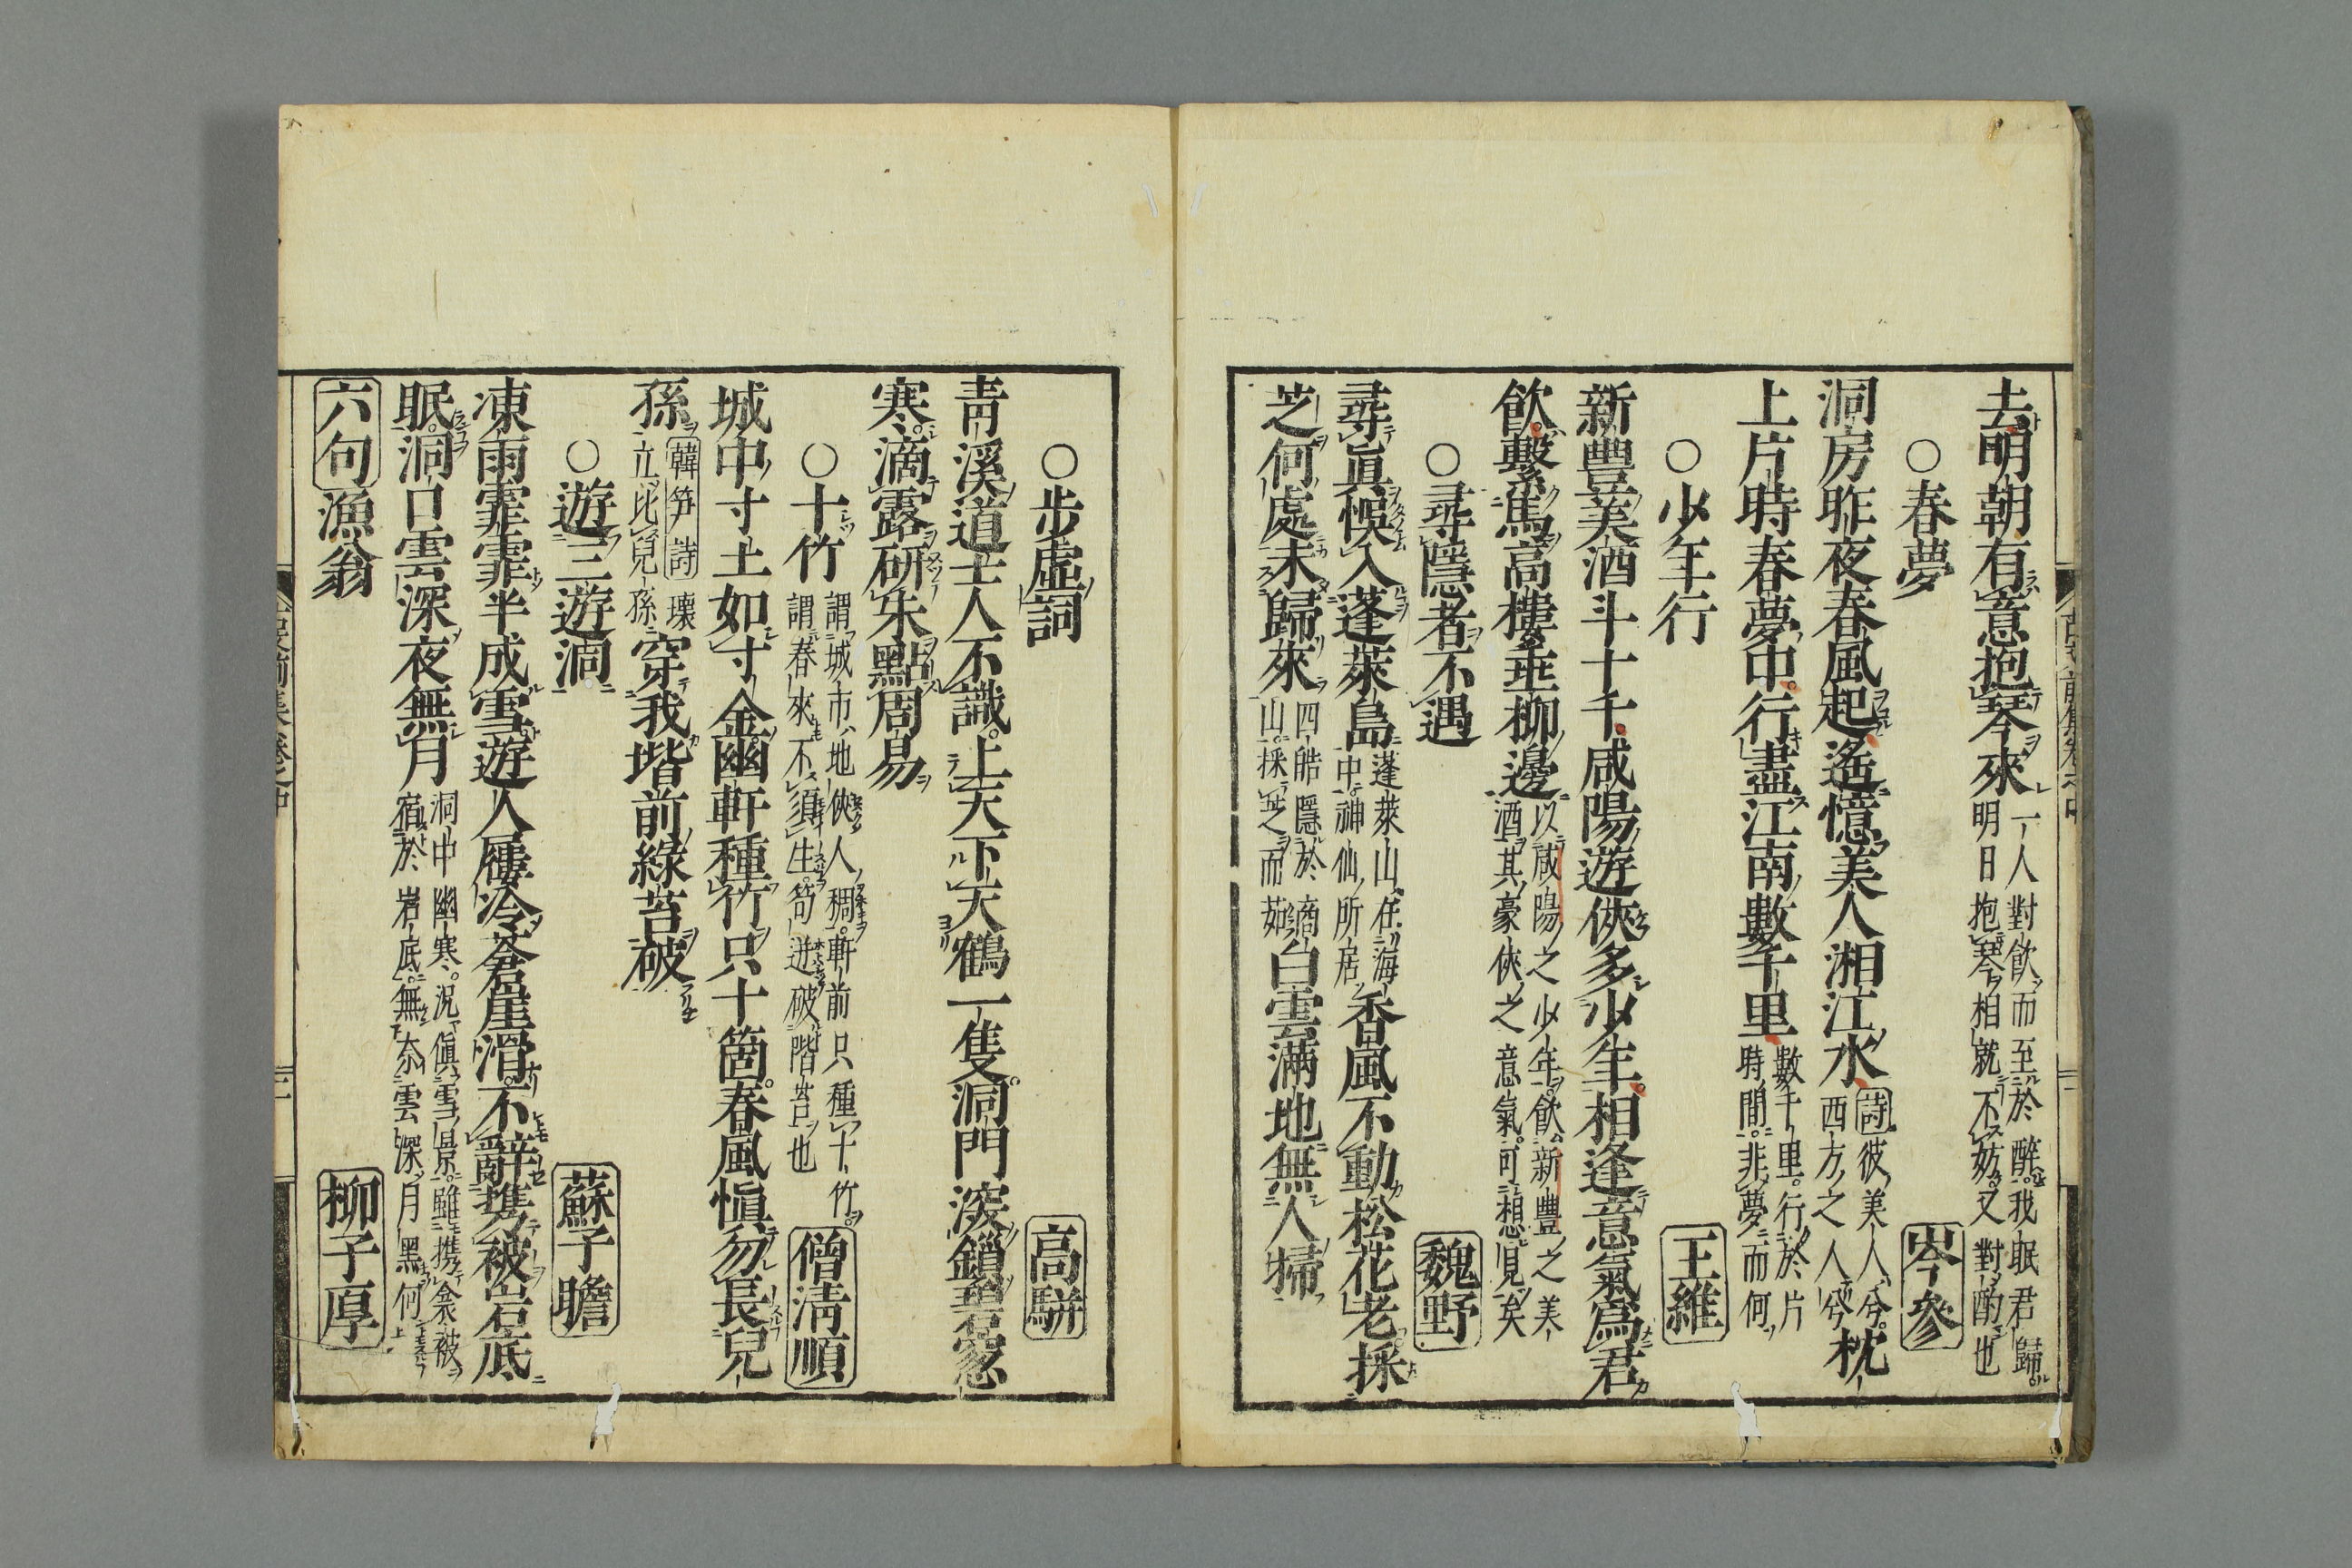 去明朝有意抱琴來一人對飲而至於醉我眠君歸明日抱琴相就不妨又對酌也
○春夢 岑參
洞房昨夜春風起遙憶美人湘江水詩彼美人兮西方之人兮枕
上片時春夢中行盡江南數千里數千里行於片時間非夢而何
○少年行 王維
新豐美酒斗十千咸陽遊俠多少年相逢意氣爲君
飲繫馬高樓垂柳邊以咸陽之少年飲新豐之美酒其豪俠之意氣可想見矣
○尋隱者不遇 魏野
尋眞悞入蓬萊島蓬萊山在海中神仙所居香風不動松花老採
芝何處未歸來四皓隱於商山採芝而茹白雲滿地無人掃
○步虛詞 高駢
靑溪道士人不識上天下天鶴一隻洞門深鎻碧窓
寒滴露研朱點周易
○十竹謂城市地俠人稠軒前只種十竹謂春來不須生笋迸破階苔也 僧淸順
城中寸土如寸金幽軒種竹只十箇春風愼勿長兒
孫韓笋詩環立比兒孫穿我堦前綠苔破
○遊三遊洞 蘇子瞻
凍雨霏霏半成雪遊人屨冷蒼崖滑不辭攜被岩底
眠洞口雲深夜無月洞中幽寒況値雪景雖携衾被宿於岩底無奈雲深月黑何
六句漁翁 柳子厚